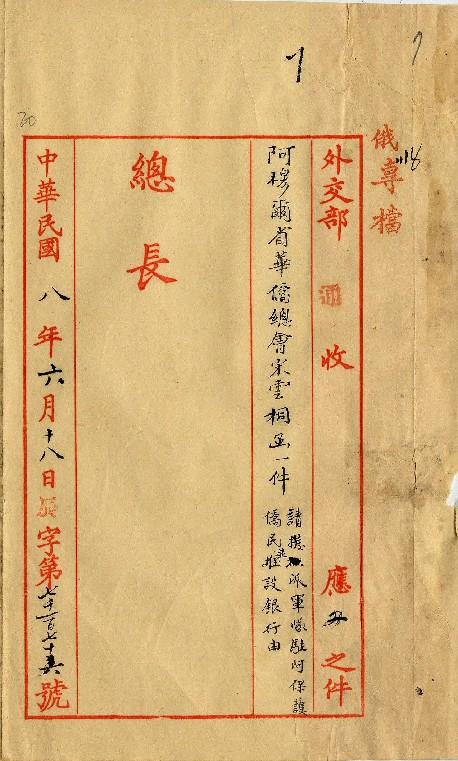 俄專檔
外交部 通 收 應 之件
阿穆爾省華僑總會宋雲桐函一件
請派軍隊駐阿保護
僑民設銀行由
總長
中華民國八年六月十八日字第七千百七十號